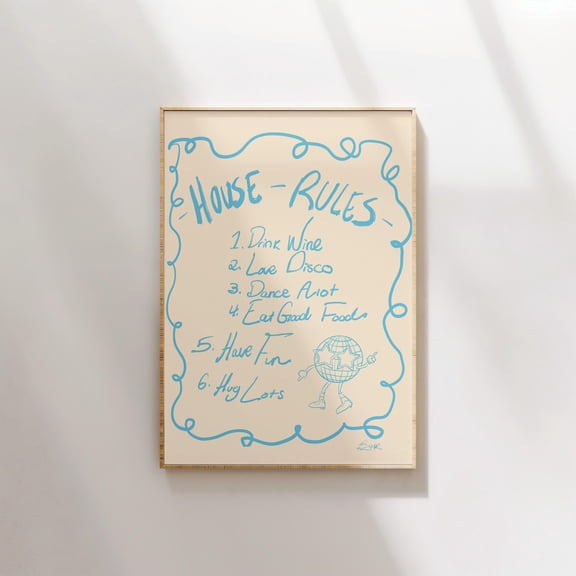 - HOUSE - RULES -
1. Drink Wine
2. Love Disco
3. Dance A lot
4. Eat Good Food
5. Have Fun
6. Hug Lots